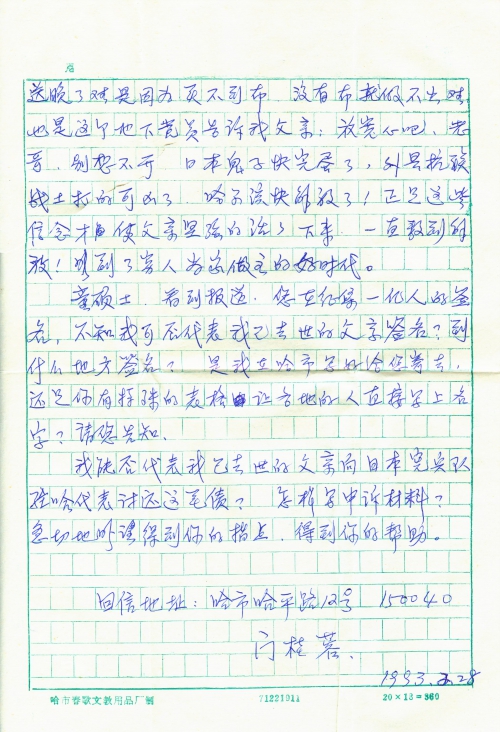 送晚了对是因为买不到布 没有布就做不出对,
也是这个地下党员告诉我父亲：放宽心吧、老
哥，别想不开 日本鬼子快完蛋了，外县抗联
战士打的可凶了，哈尔滨快解放了！正是这些
信念才使父亲坚强的活了下来，一直熬到解
放！盼到了穷人当家做主的好时代。
童硕士、看到报道，您在征集一亿人的签
名，不知我可否代表我已去世的父亲签名？到
什么地方签名？是我在哈市写好给您寄去，
还是你有特殊的表格让各地的人直接写上名
字？请您告知.
我能否代表我已去世的父亲向日本宪兵队
驻哈代表讨还这笔债？ 怎样写申诉材料？
急切地盼望得到你的指点，得到你的帮助。
回信地址：哈市哈平路12号 150040
门桂蓉.
1993.
哈市春歌文教用品厂制 71221011 20×18=360